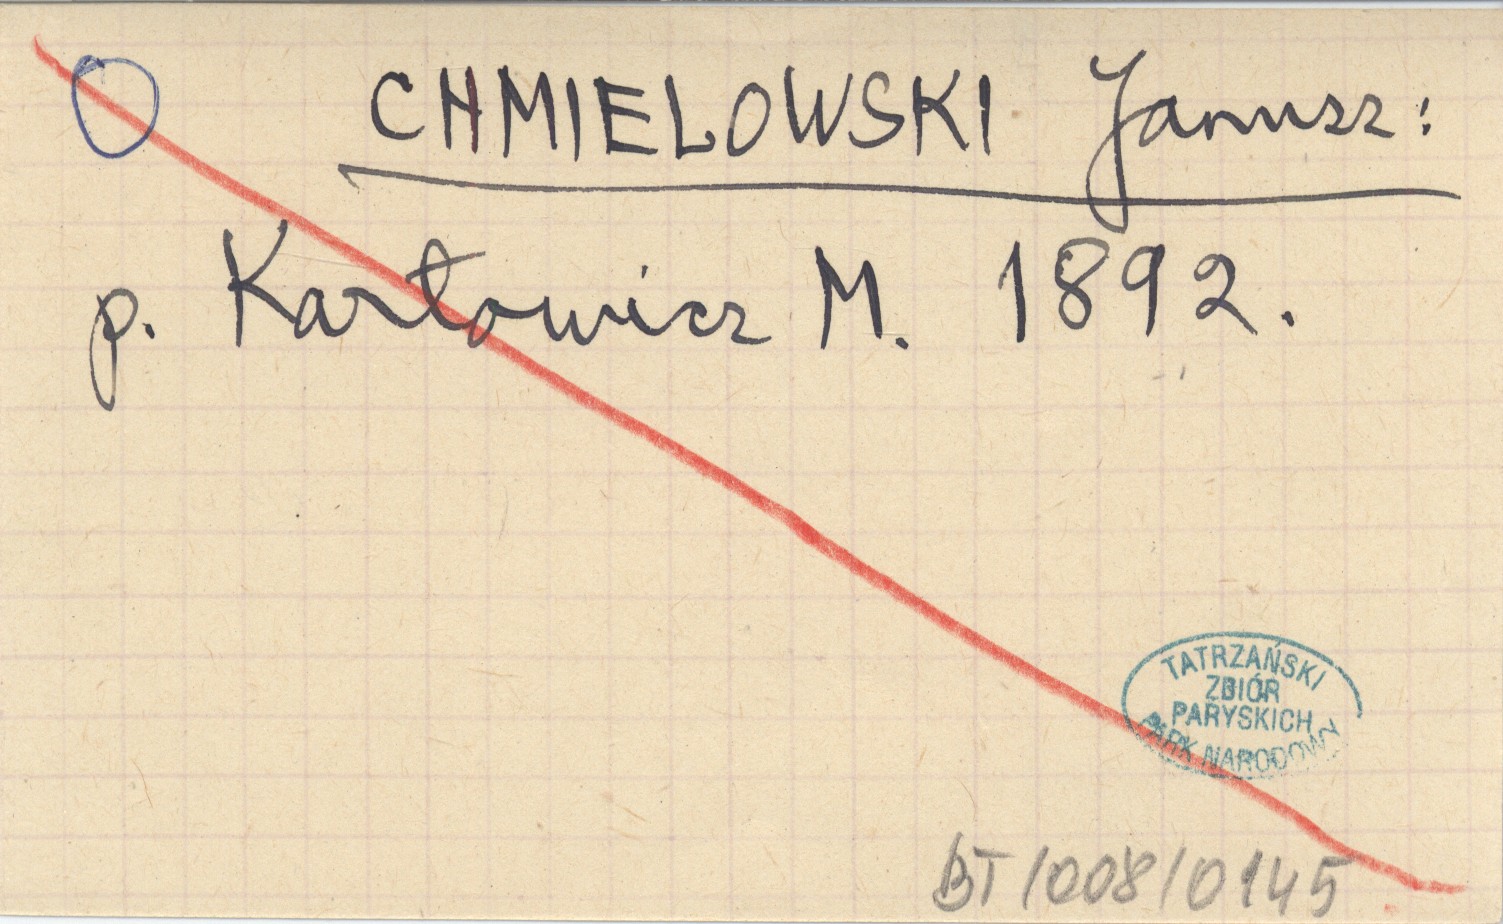 CHMIELOWSKI Janusz:
p. Karłowicz M. 1892.
TATRZAŃSKI
ZBIÓR
PARYSKICH
PARK NARODOWY
BT/008/0145